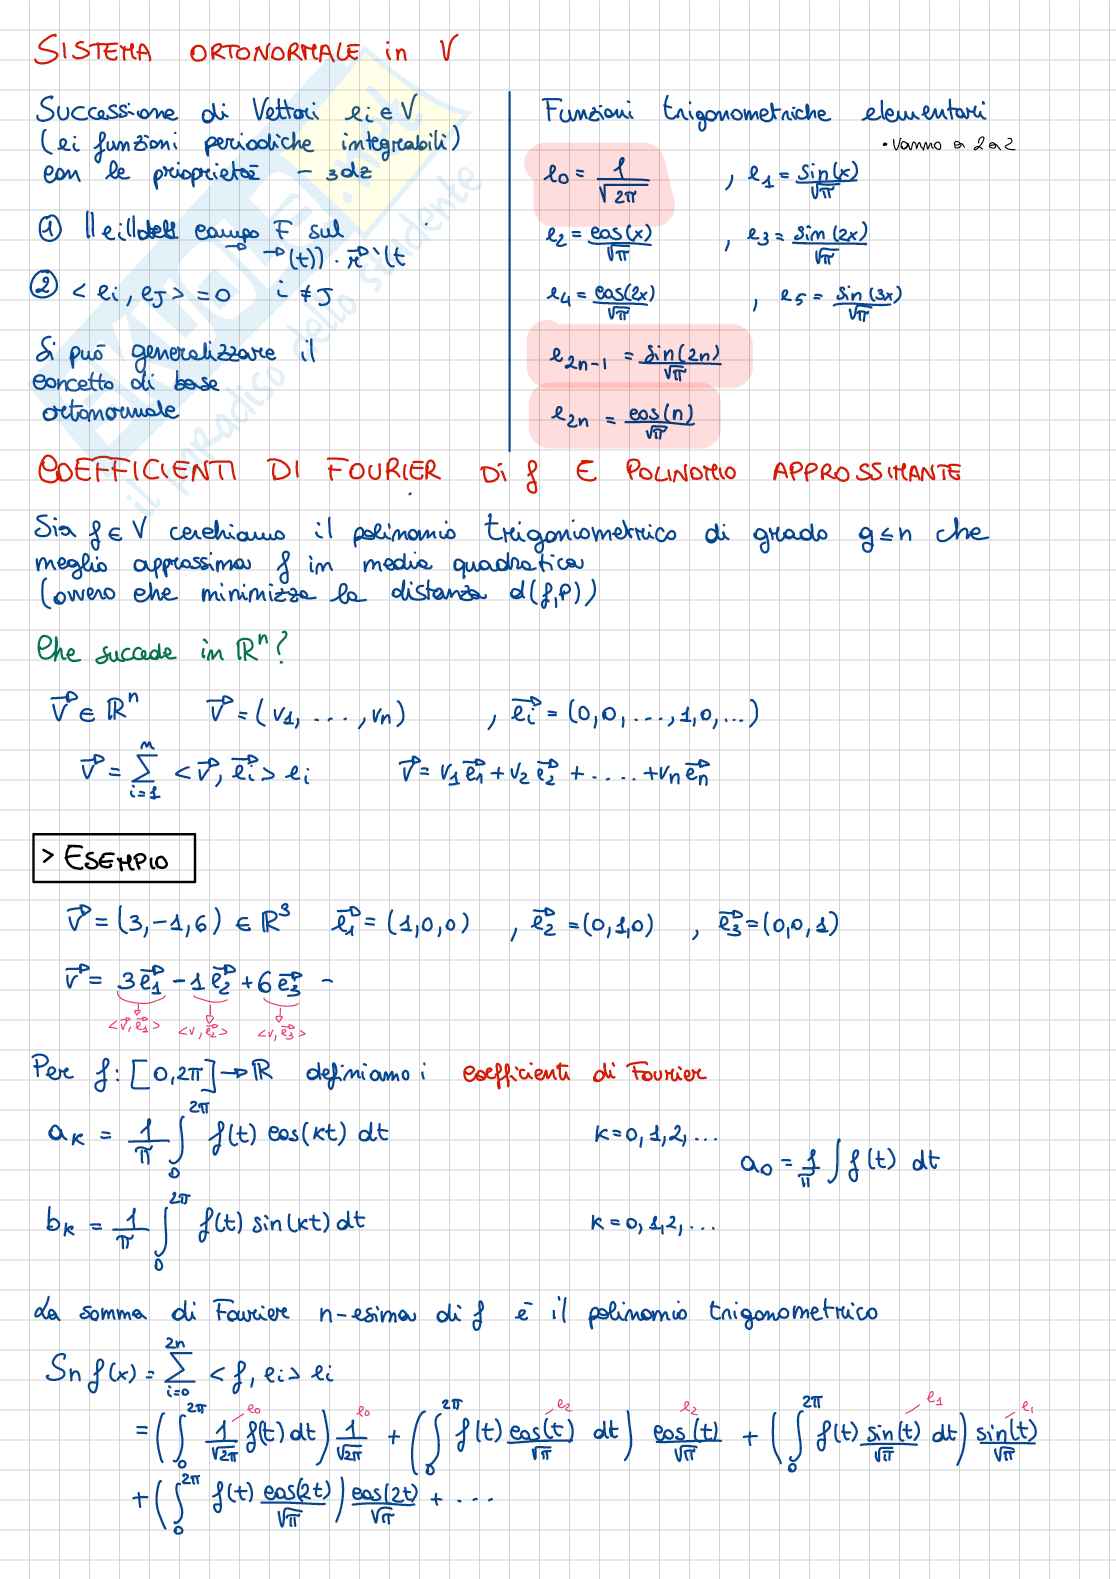 SISTEMA ORTONORMALE in V
Successione di Vettori ei ∈ V
(ei funzioni periodiche integrabili)
con le prioprietà – 3dz
① ||ei||dell campo F sul
(t)) · r'(t
② < ei, eJ > = 0 i ≠ J
Si può generalizzare il
concetto di base
ortonormale
Funzioni trigonometriche elementari
• vanno a 2 a 2
e0 = 1/√2π , e1 = sin(x)/√π
e2 = cos(x)/√π , e3 = sin(2x)/√π
e4 = cos(2x)/√π , e5 = sin(3x)/√π
e2n-1 = sin(2n)/√π
e2n = cos(n)/√π
COEFFICIENTI DI FOURIER Di f E POLINOMIO APPROSSIMANTE
Sia f ∈ V cerchiamo il polinomio trigoniometrico di grado g ≤ n che
meglio approssima f in media quadratica
(ovvero che minimizza la distanza d(f,P))
Che succede in ℝⁿ?
v⃗ ∈ ℝⁿ v⃗ = (v1, ..., vn) , e⃗i = (0,0,...,1,0,...)
v⃗ = Σ i=1 n < v⃗, e⃗i > ei v⃗ = v1 e⃗1 + v2 e⃗2 + ..... + vn e⃗n
> ESEMPIO
v⃗ = (3,-1,6) ∈ ℝ³ e⃗1 = (1,0,0) , e⃗2 = (0,1,0) , e⃗3 = (0,0,1)
v⃗ = 3e⃗1 - 1e⃗2 + 6e⃗3 –
<v⃗,e⃗1> <v,e⃗2> <v,e⃗3>
Per f: [0,2π] → ℝ definiamo i coefficienti di Fourier
aK = 1/π ∫ 0 2π f(t) cos(kt) dt K = 0,1,2,...
a0 = 1/π ∫ f(t) dt
bK = 1/π ∫ 0 2π f(t) sin(kt) dt K = 0,1,2,...
La somma di Fourier n-esima di f è il polinomio trigonometrico
Sn f(x) = Σ i=0 2n < f, ei > ei
= (∫ 0 2π 1/√2π f(t) dt) 1/√2π + (∫ 0 2π f(t) cos(t)/√π dt) cos(t)/√π + (∫ 0 2π f(t) sin(t)/√π dt) sin(t)/√π
e0 e0 e2 e2 e1 e1
+ (∫ 0 2π f(t) cos(2t)/√π) cos(2t)/√π + ...
il paradiso dello studente